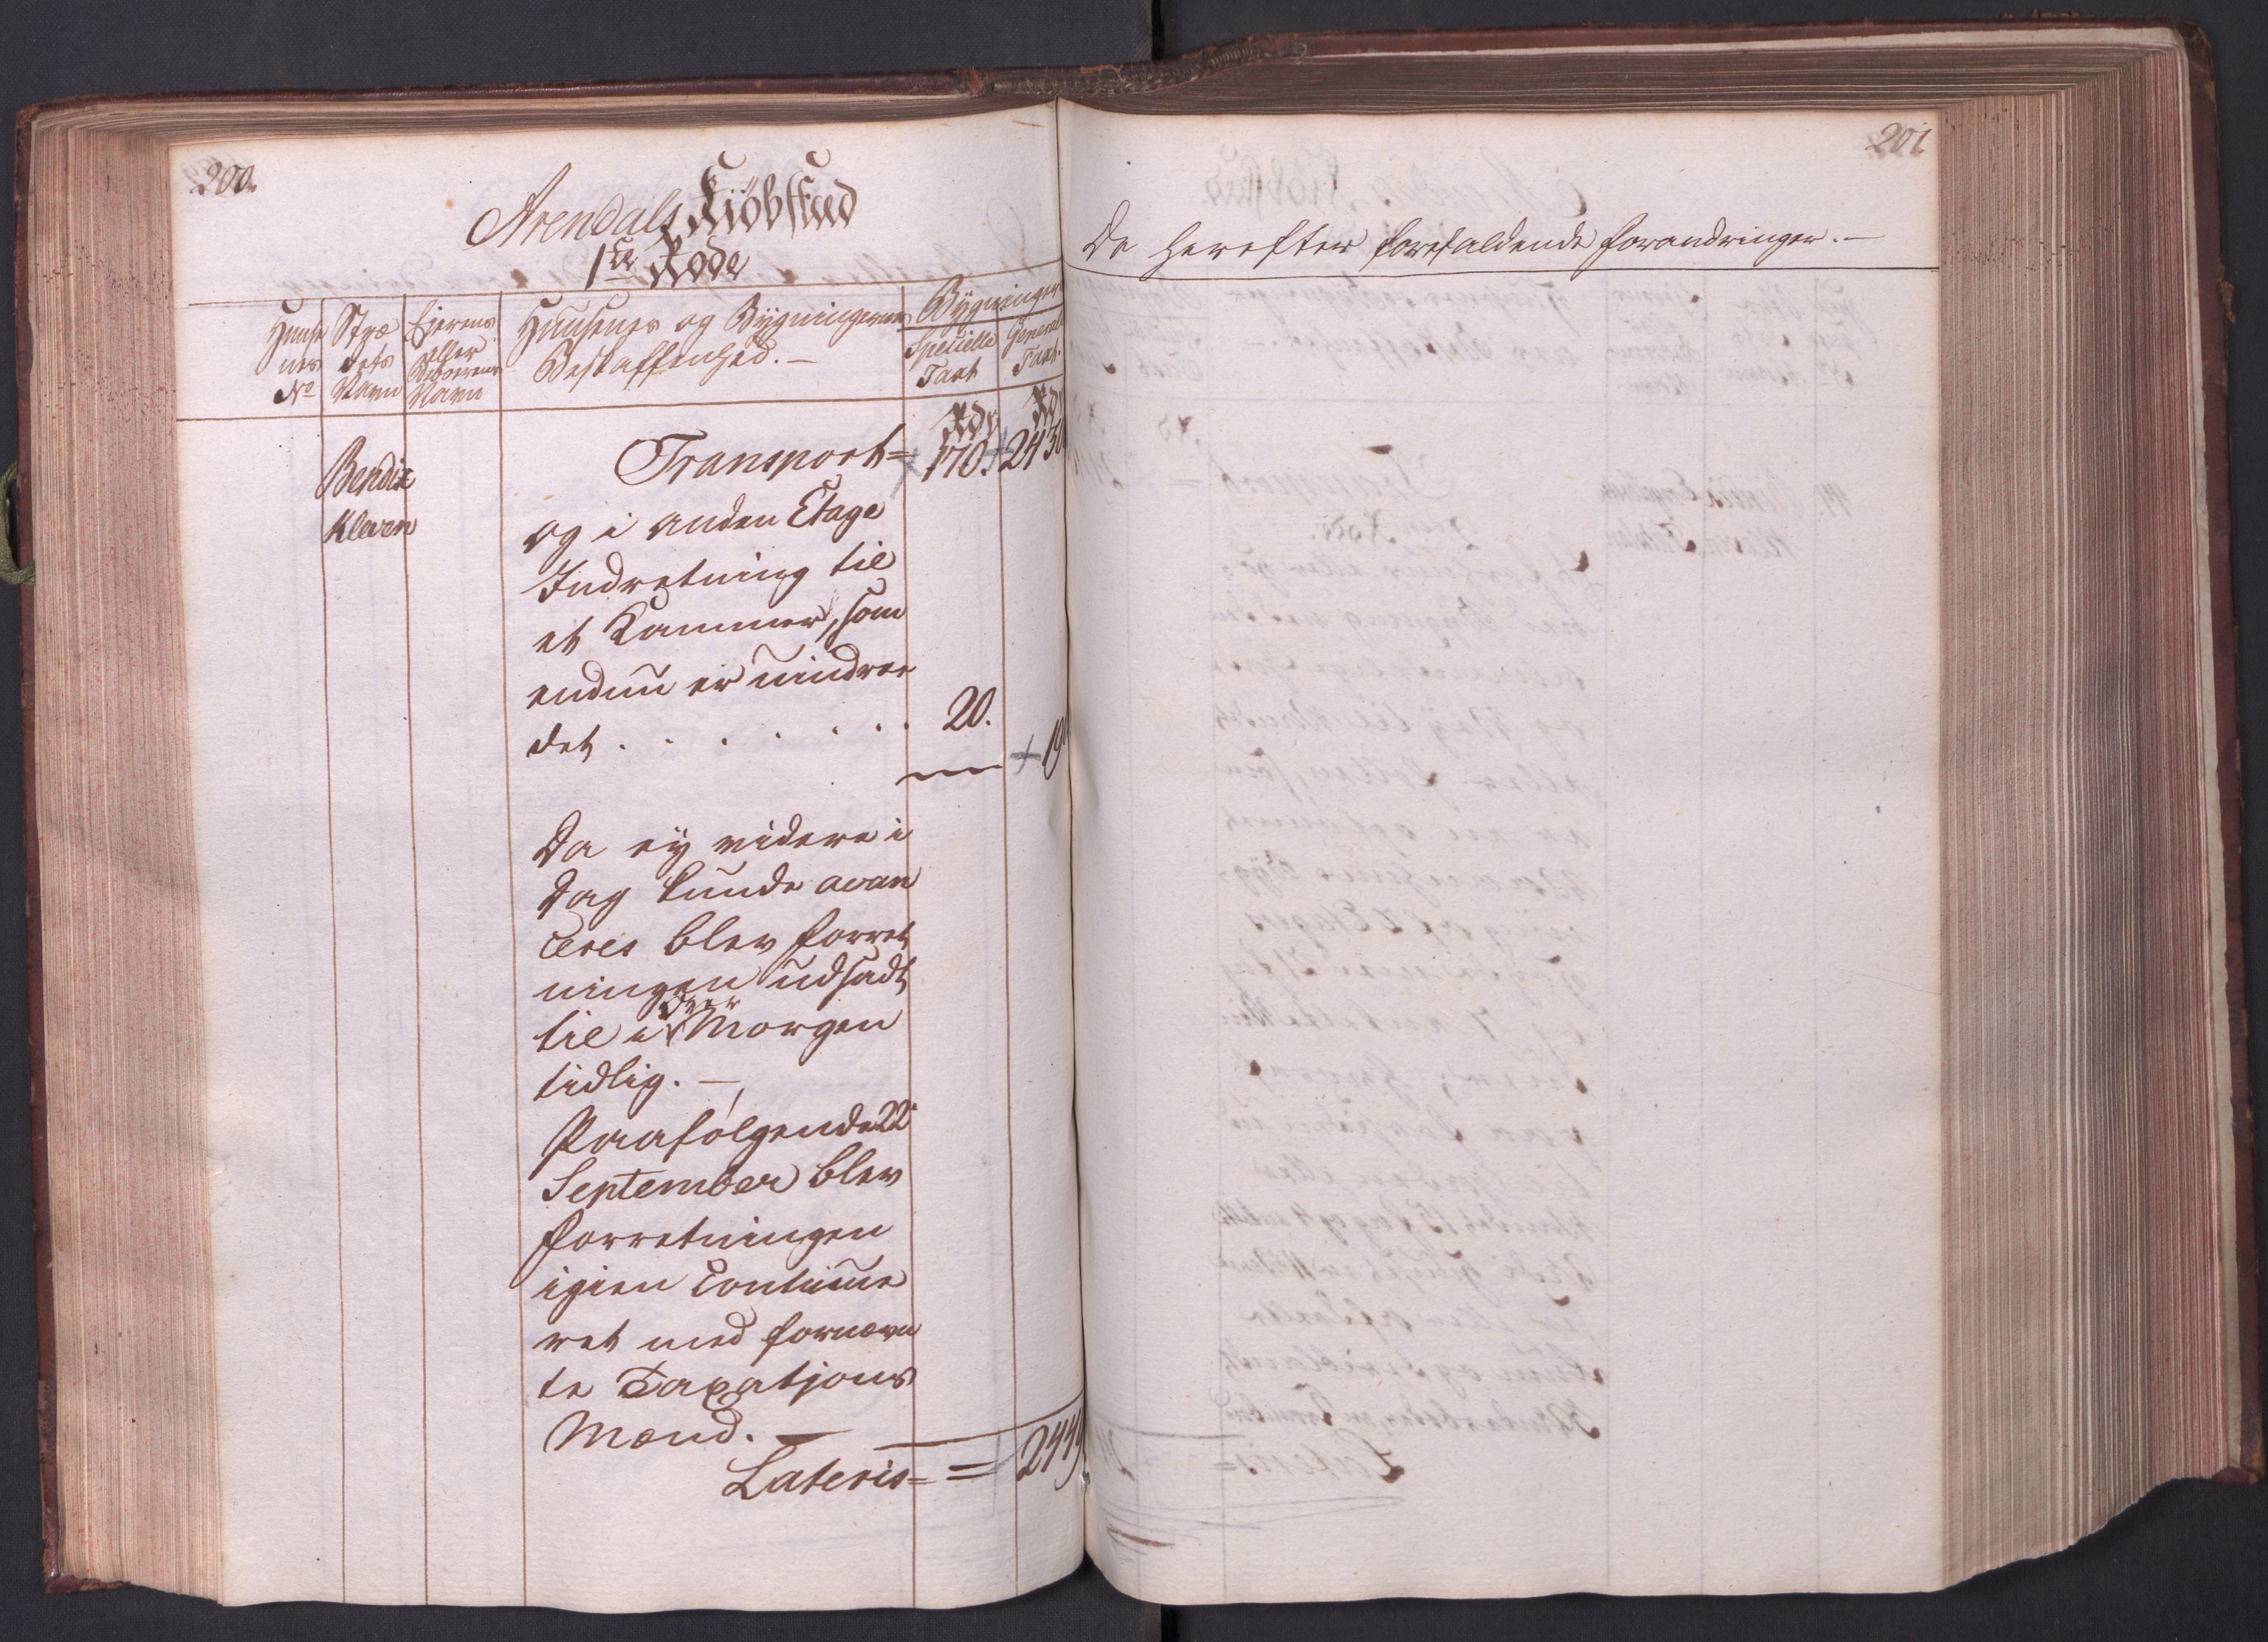 200.
Arendals Kiöbstæd
1ste Rode
Huuse
nes
No
Stræ
dets
Navn
Eierens
eller
Beboerens
Navn
Huusenes og Bygningernes
Beskaffenhed. —
Bygninger
Specielle
Taxt
Generale
Taxt.
Rdr
Rdr
Transport = 170.
Bendix
Kleven
og i anden Etage
Indretning til
et Kammer, som
endnu er uindree
det . . . . . . . 20.
Da ey videre i
Dag kunde avan
ceres blev forret
ningen udsadt
til i Morgen
over
tidlig. —
Paafølgende 22
September blev
forretningen
igien Continue
ret med fornævn
te Taxations
Mænd. —
Lateris = =
201
De herefter forefaldende forandringer. —